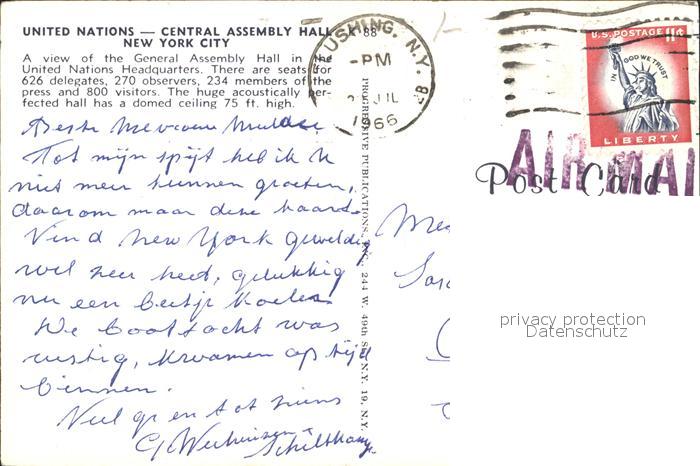 UNITED NATIONS — CENTRAL ASSEMBLY HALL
NEW YORK CITY
A view of the General Assembly Hall in the
United Nations Headquarters. There are seats for
626 delegates, 270 observers, 234 members of the
press and 800 visitors. The huge acoustically per-
fected hall has a domed ceiling 75 ft. high.
K 88
FLUSHING, N.Y.
-PM
1966
U.S. POSTAGE 11¢
IN GOD WE TRUST
LIBERTY
AIR MAI
Post Card
PROGRESSIVE PUBLICATIONS, INC., 244 W. 49th St., N.Y. 19, N.Y.
Beste Mevrouw Mulder
Tot mijn spijt heb ik U
niet meer kunnen groeten,
daarom maar deze kaart.
Vind New York geweldig
wel zeer heet, gelukkig
nu een beetje koeler
De boottocht was
rustig, kwamen op tijd
binnen.
Veel gr en tot ziens
G
Mev
privacy protection
Datenschutz